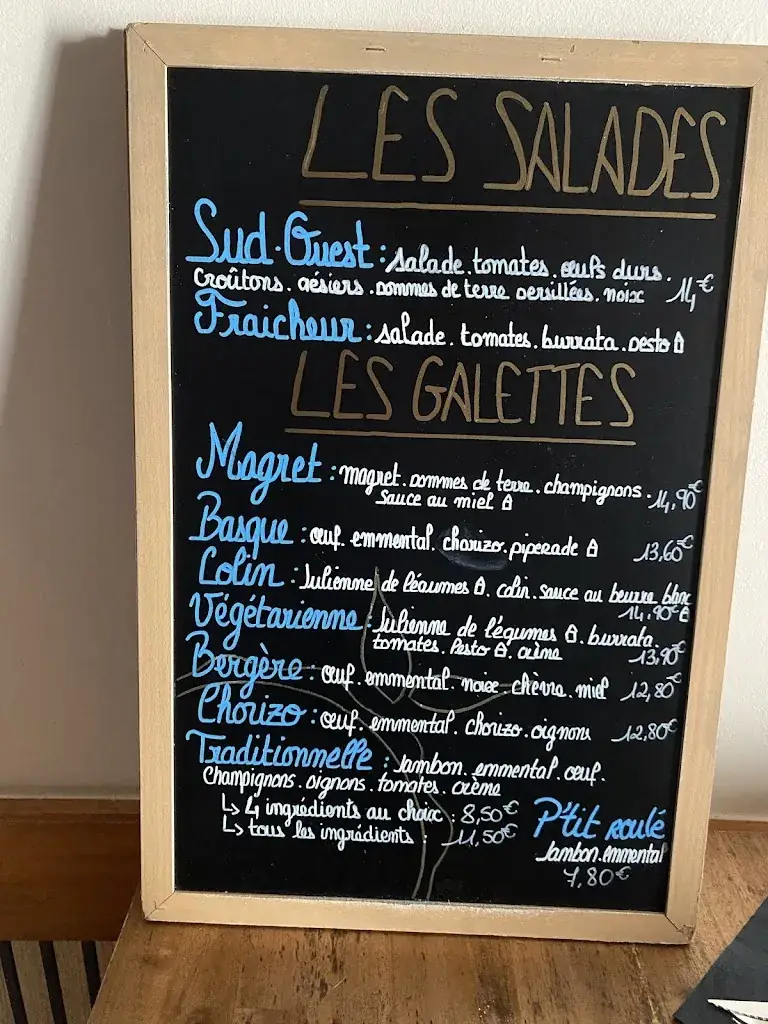 LES SALADES
Sud-Ouest : salade . tomates . œufs durs .
Croûtons . gésiers . pommes de terre persillées . noix 14€
Fraîcheur : salade . tomates . burrata . pesto
LES GALETTES
Magret : magret . pommes de terre . champignons .
sauce au miel 14,90€
Basque : œuf . emmental . chorizo . piperade 13,60€
Colin : Julienne de légumes . colin . sauce au beurre blanc
14,90€
Végétarienne : Julienne de légumes . burrata .
tomates . Pesto . crème 13,90€
Bergère : œuf . emmental . noix . chèvre . miel 12,80€
Chorizo : œuf . emmental . chorizo . oignons 12,80€
Traditionnelle : Jambon . emmental . œuf .
Champignons . oignons . tomates . crème
↳ 4 ingrédients au choix : 8,50€
↳ tous les ingrédients : 11,50€
P'tit roulé
Jambon . emmental
7,80€